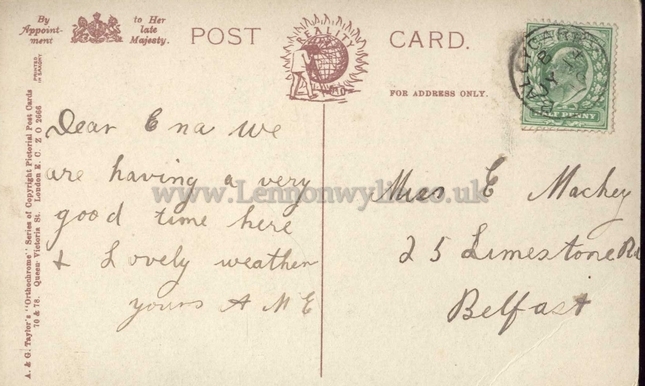 By
Appoint-
ment
to Her
late
Majesty.
POST CARD.
REALITY
FOR ADDRESS ONLY.
HALF PENNY
PRINTED IN SAXONY
A. & G. Taylor's "Orthochrome" Series of Copyright Pictorial Post Cards
70 & 78. Queen Victoria St. London E. C. Z O 2666
Dear Ena We
are having a very
good time here
& Lovely weather
yours A M E
Miss E Mackey
25 Limestone Rd
Belfast
www.Lennonwylie.co.uk